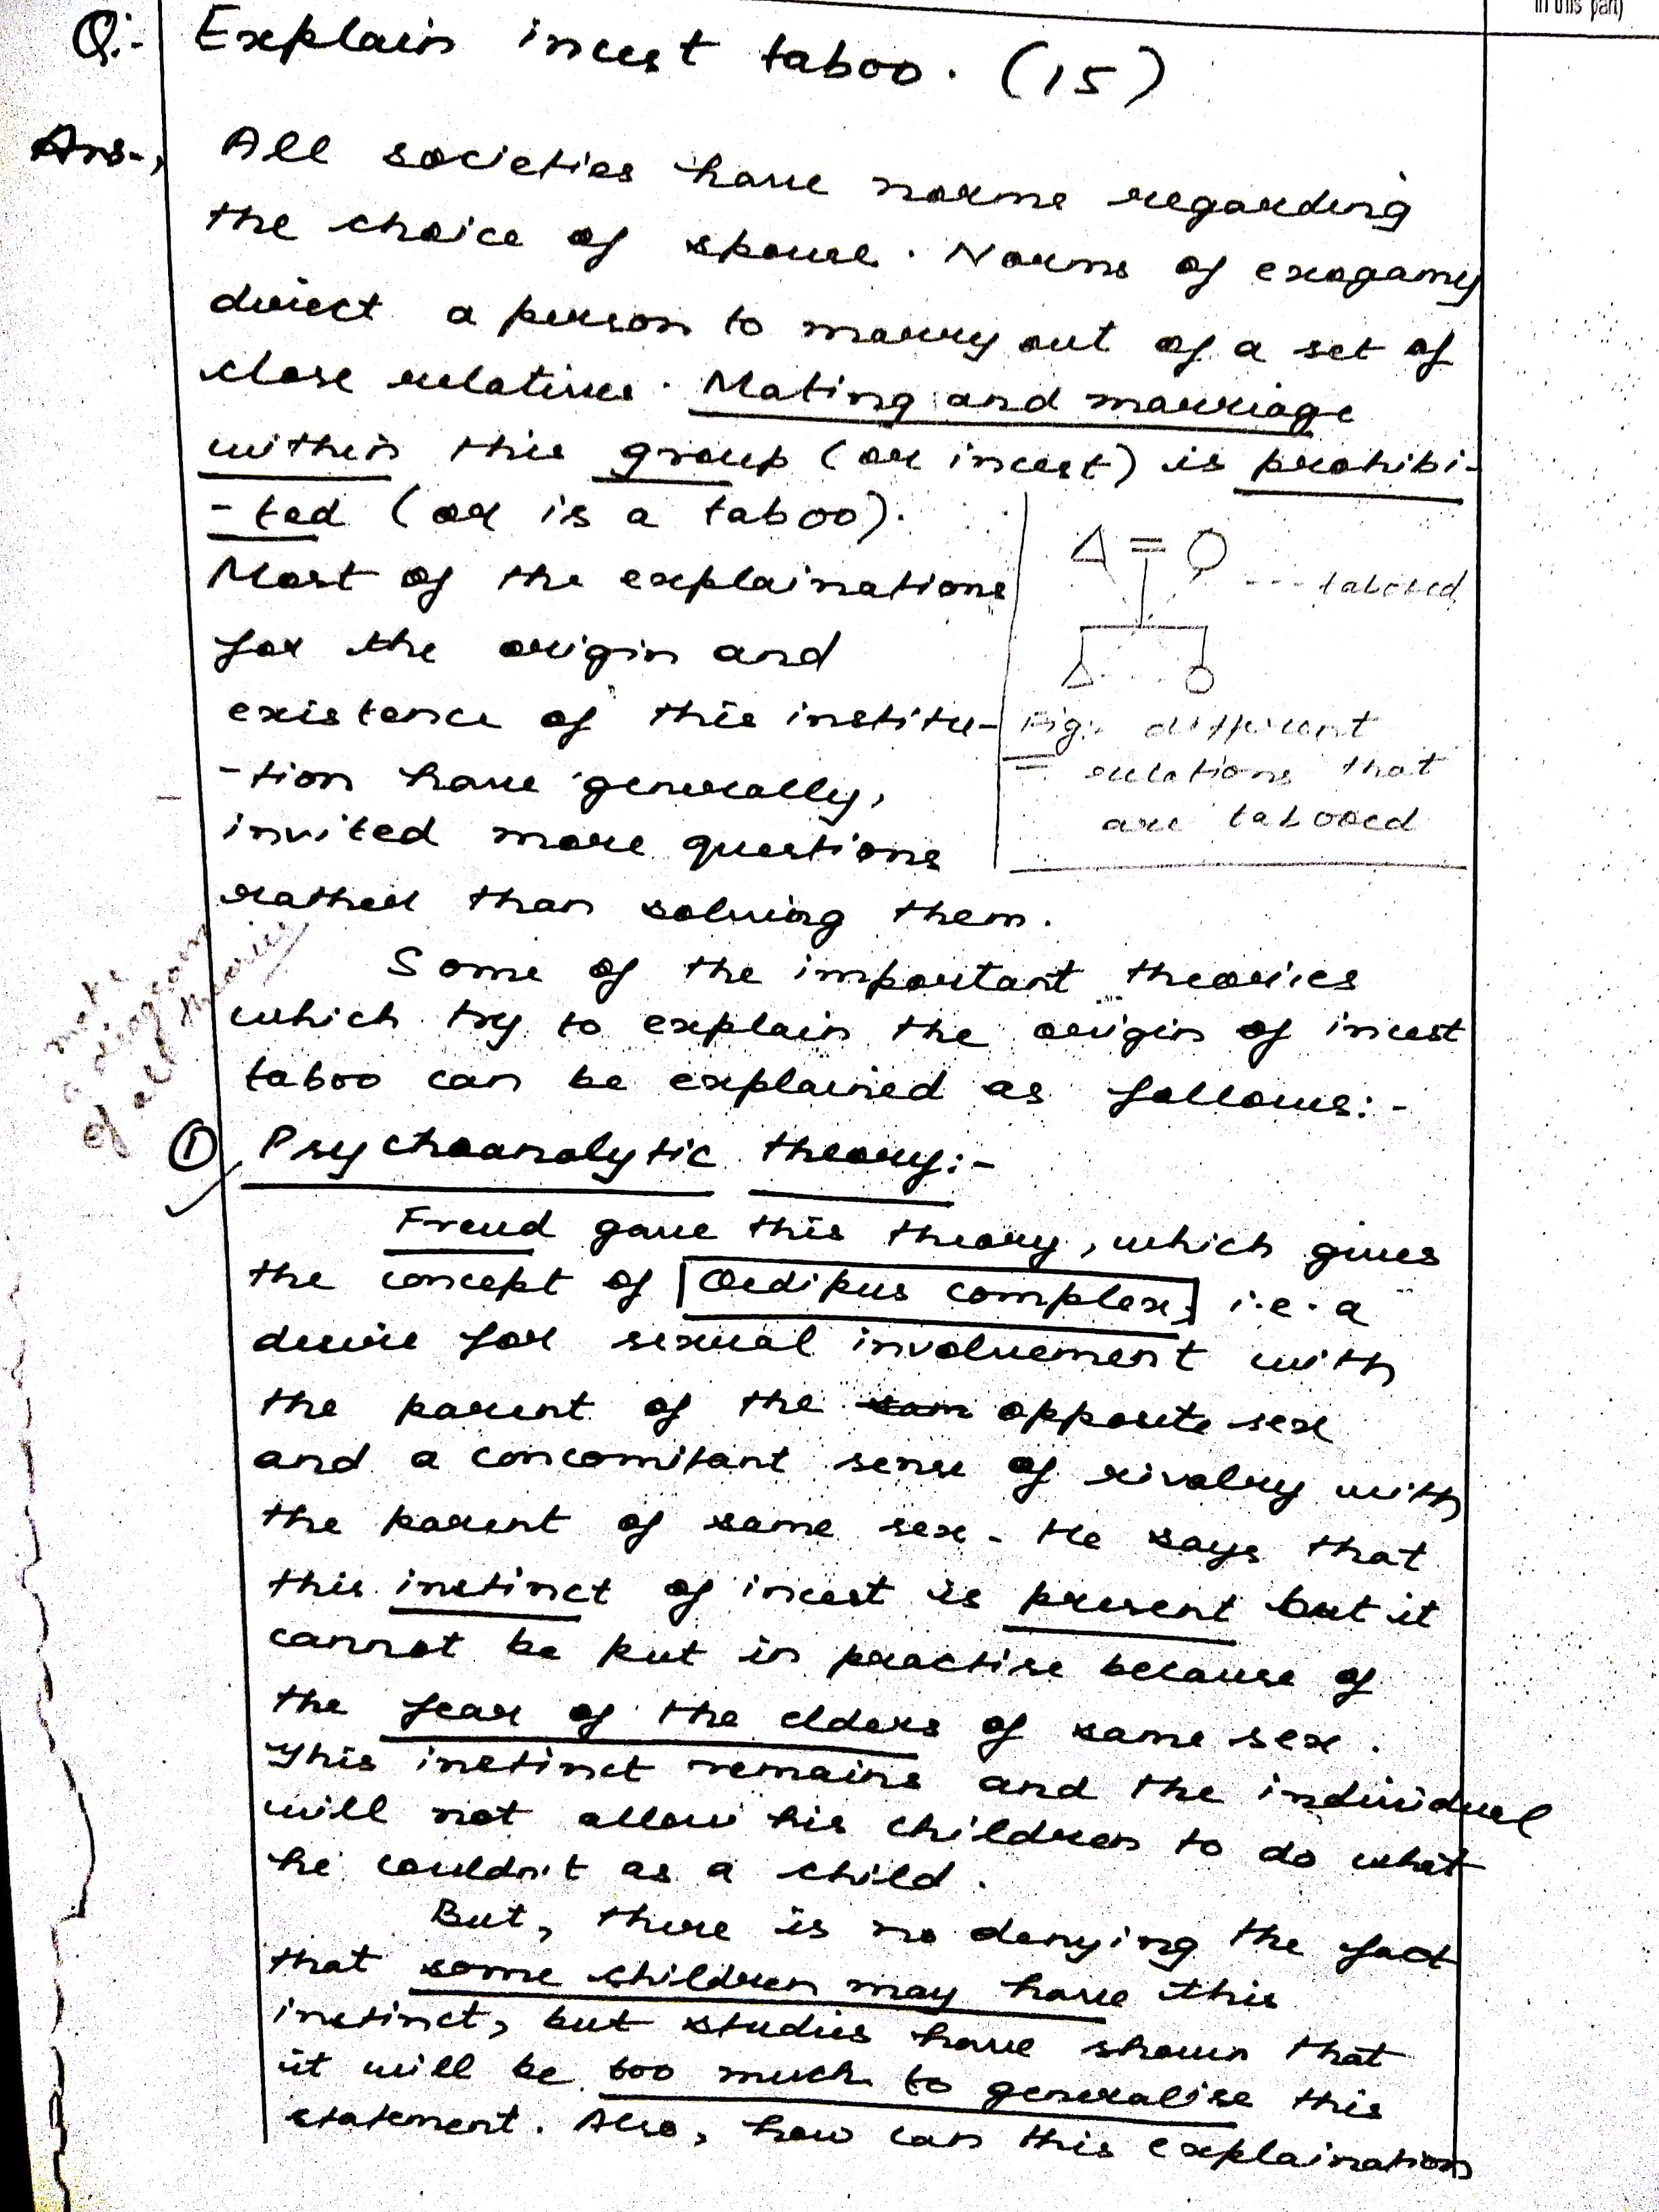 in this part)
Q:- Explain incest taboo. (15)
Ans-, All societies have norms regarding
the choice of spouse. Norms of exogamy
direct a person to marry out of a set of
close relatives. Mating and marriage
within this group (or incest) is prohibi-
-ted (or is a taboo).
Most of the explainations
for the origin and
existence of this institu-
-tion have generally,
invited more questions
rather than solving them.
tabooed
Fig:- different
relations that
are tabooed
Some of the important theories
which try to explain the origin of incest
taboo can be explained as follows:-
make
a diagram
of all theories
① Psychoanalytic theory:-
Freud gave this theory, which gives
the concept of Oedipus complex, i.e. a
desire for sexual involvement with
the parent of the opposite sex
and a concomitant sense of rivalry with
the parent of same sex. He says that
this instinct of incest is present but it
cannot be put in practise because of
the fear of the elders of same sex.
This instinct remains and the individual
will not allow his children to do what
he couldn't as a child.
But, there is no denying the fact
that some children may have this
instinct, but studies have shown that
it will be too much to generalise this
statement. Also, how can this explaination